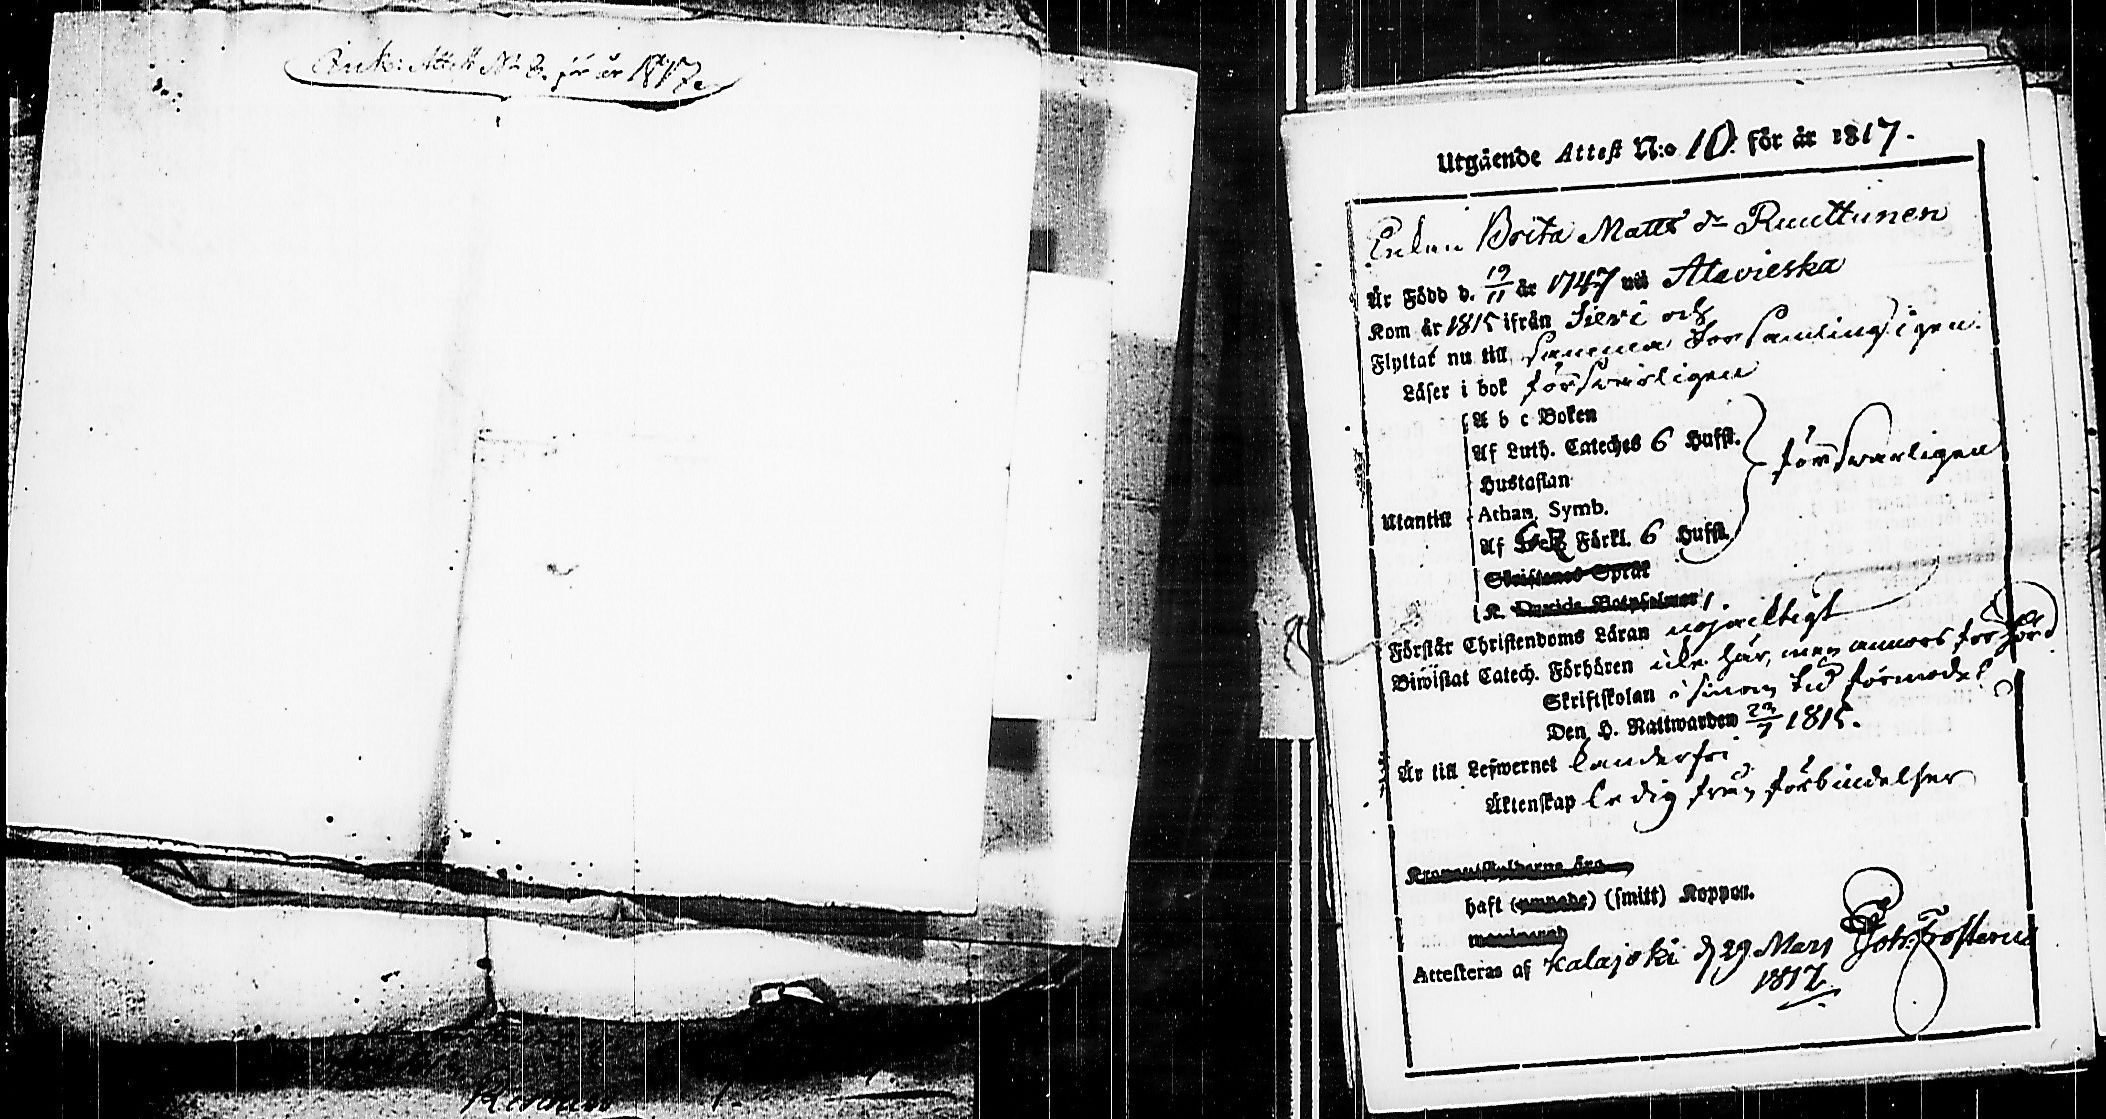 Ank: Attest N:o 8. för år 1817.
Utgående Attest N:o 10 för år 1817.
Enkan Brita Matts dr Ruuttunen
Är Född d. 19/11 år 1747 uti Alavieska
Kom år 1815 ifrån Sievi och
Flyttat nu till samma Församling igen.
Läser i bok försvarligen
A b c Boken
Af Luth. Cateches 6 Hufst.
Hustaflan
försvarligen
Utantill
Athan. Symb.
Af Förkl. 6 Hufst.
Skriftenes Språk
K. Davids Botpsalmer
Förstår Christendoms Läran nojaktigt
Biwistat Catech. Förhören icke här, men annors förhörd
Skriftskolan i sinom tid förmodel
Den H. Nattwarden 23/7 1815.
Är till Lefwernet landerfri
Äktenskap ledig från förbindelser
Kronoutskylderna
haft (ympade) (smitt) Koppor.
Attesteras af Kalajoki d 29 Mars Joh: Frosterus
1817